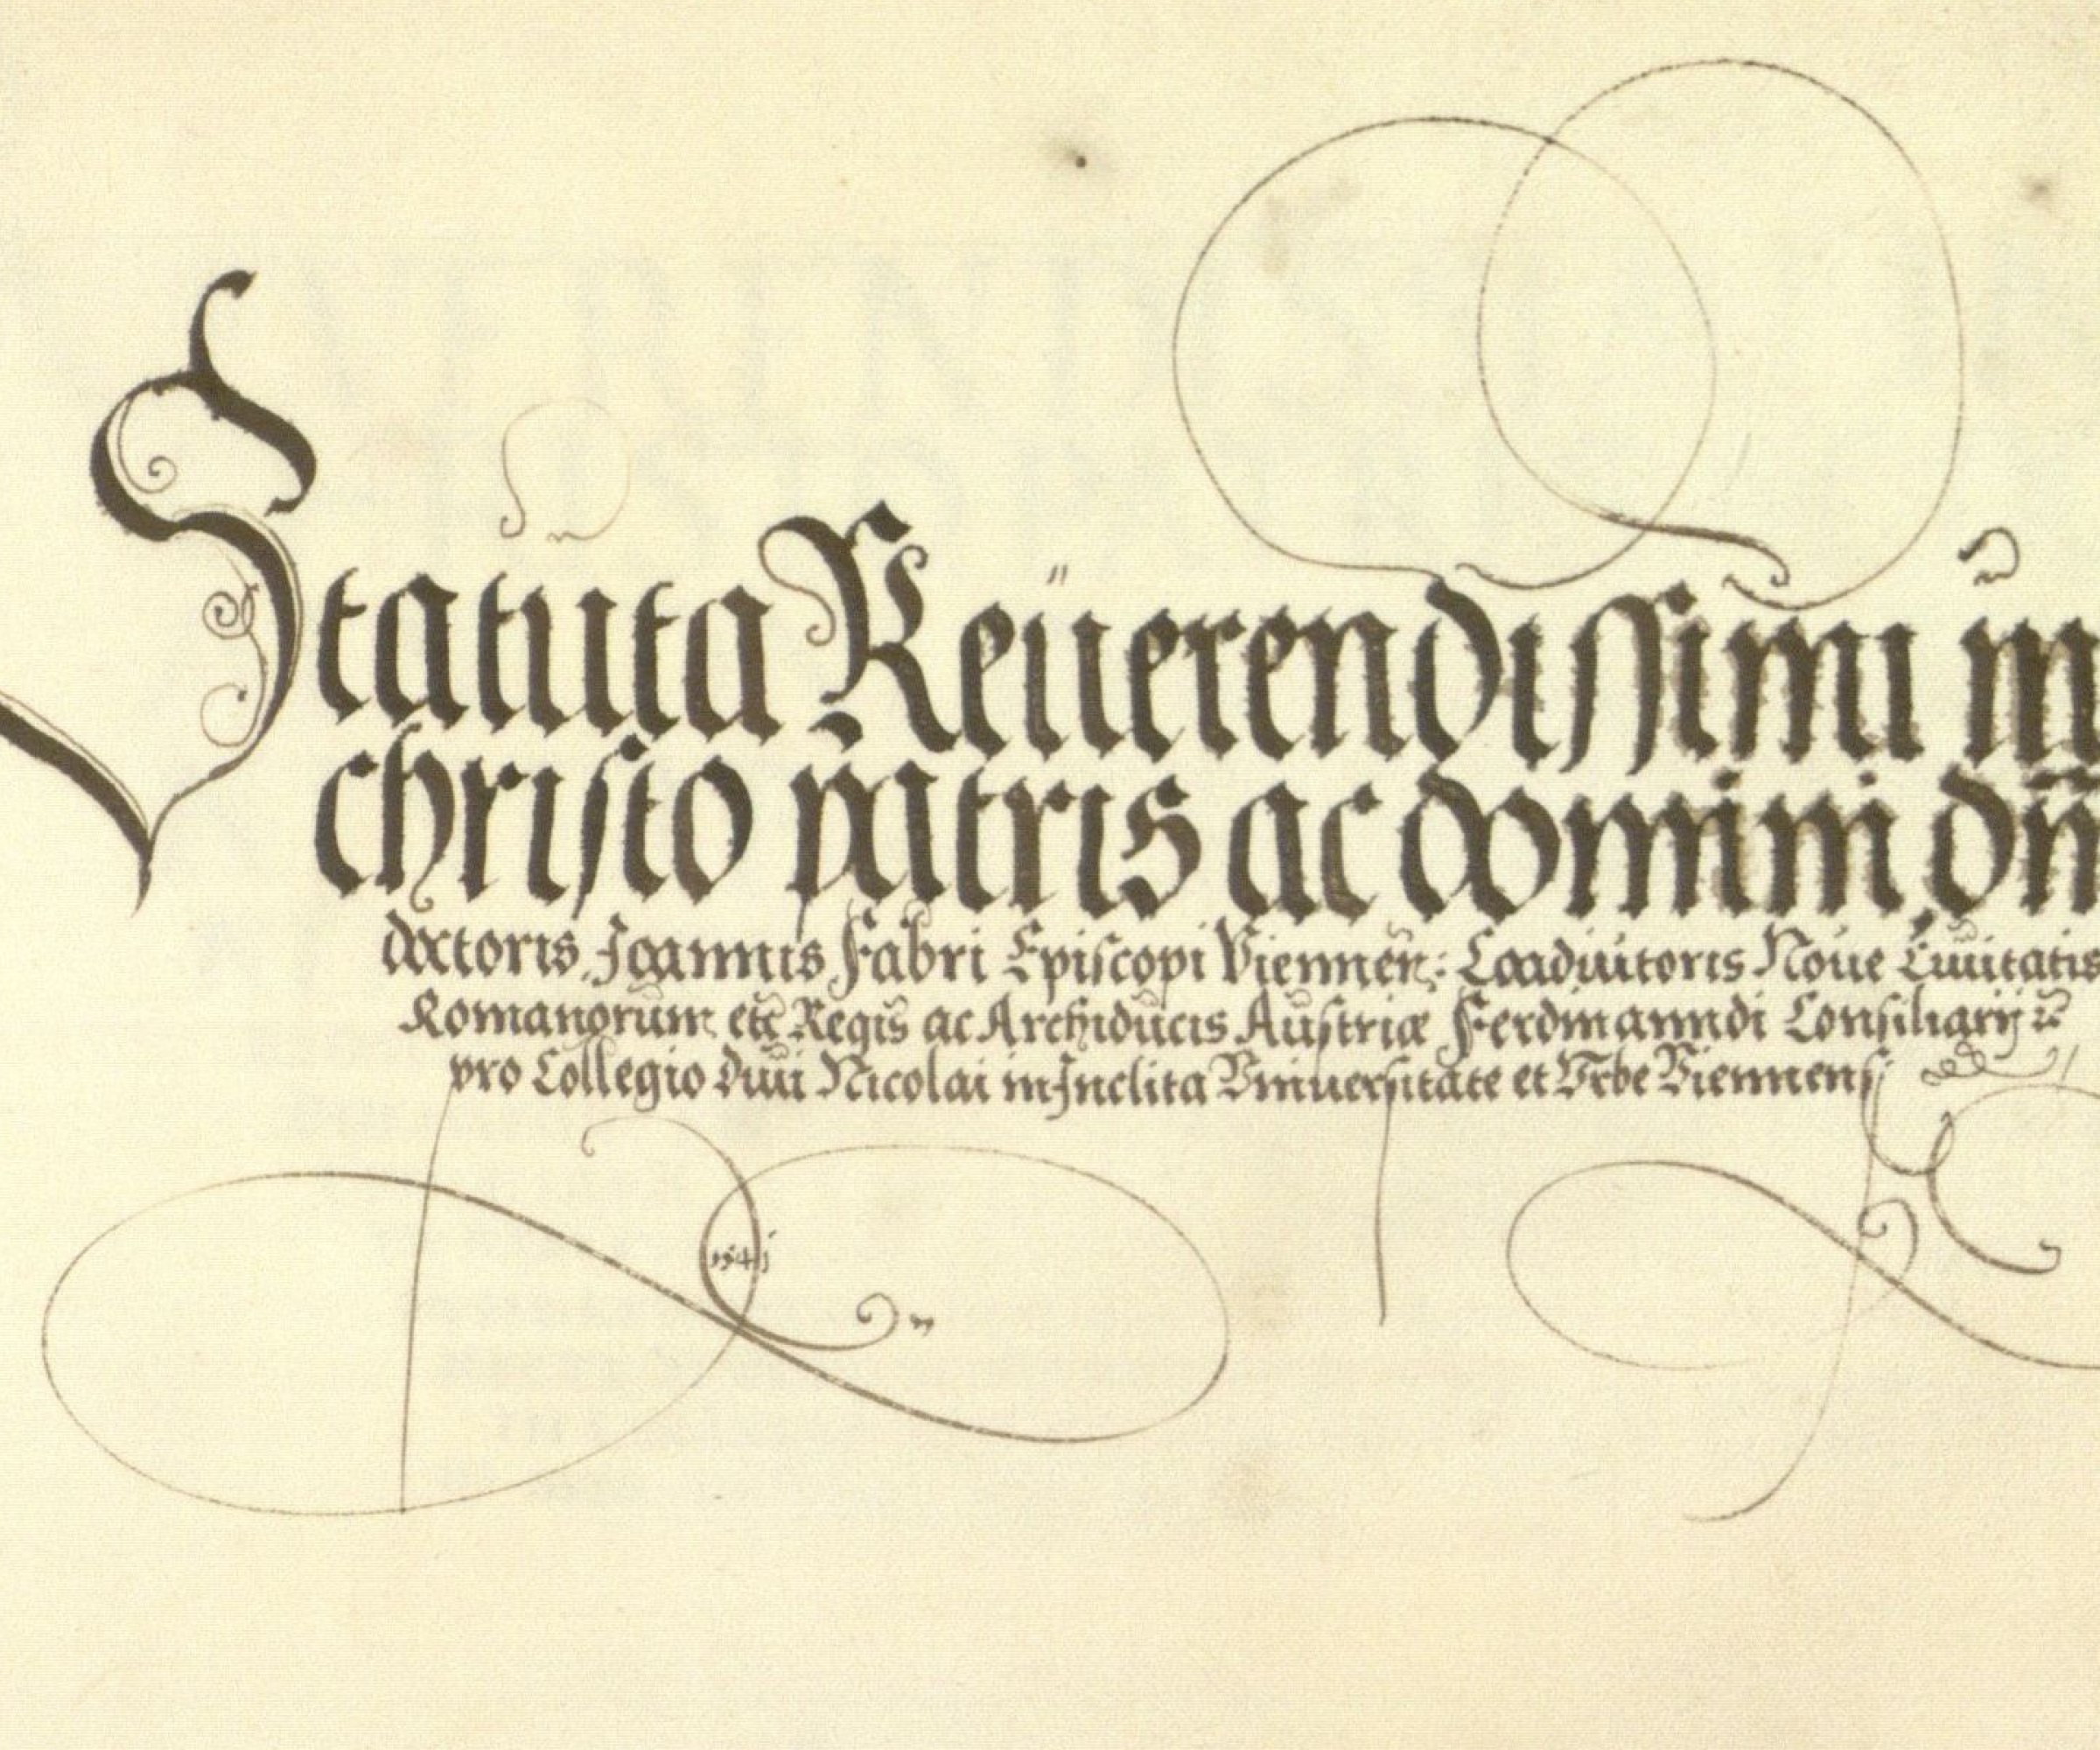 Statuta Reuerendissimi in
christo patris ac domini dn̄
doctoris Joannis Fabri Episcopi Viennen̄: Coadiuitoris Noue Ciuitatis
Romanorum etc̄ Regis ac Archiducis Austriæ Ferdinanndi Consiliarij
pro Collegio diui Nicolai in Inclita Vniuersitate et Vrbe Viennens̄
1541